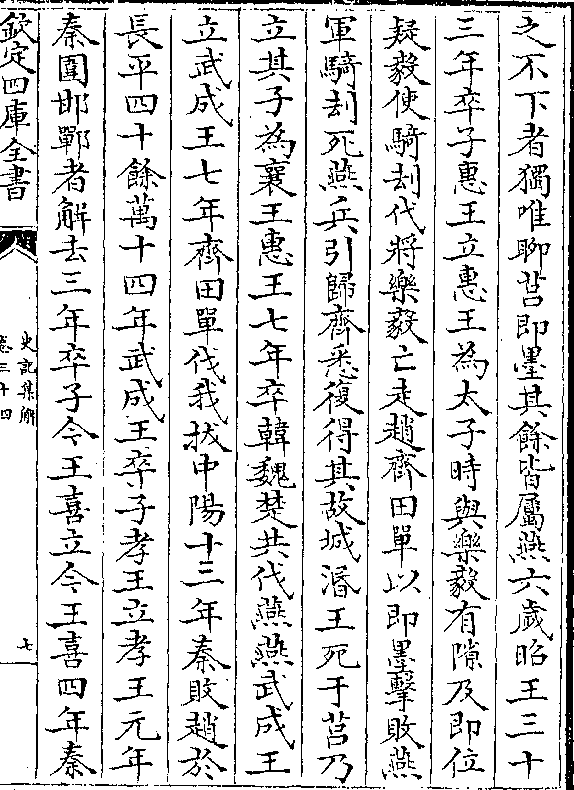 之不下者獨唯聊莒即墨其餘皆屬燕六歲昭王三十
三年卒子惠王立惠王為太子時與樂毅有隙及即位
疑毅使騎刦代將樂毅亡走趙齊田單以即墨擊敗燕
軍騎刦死燕兵引歸齊悉復得其故城湣王死于莒乃
立其子為襄王惠王七年卒韓魏楚共伐燕燕武成王
立武成王七年齊田單伐我拔中陽十三年秦敗趙於
長平四十餘萬十四年武成王卒子孝王立孝王元年
秦圍邯鄲者解去三年卒子今王喜立今王喜四年秦
欽定四庫全書
史記集解
卷三十四
七